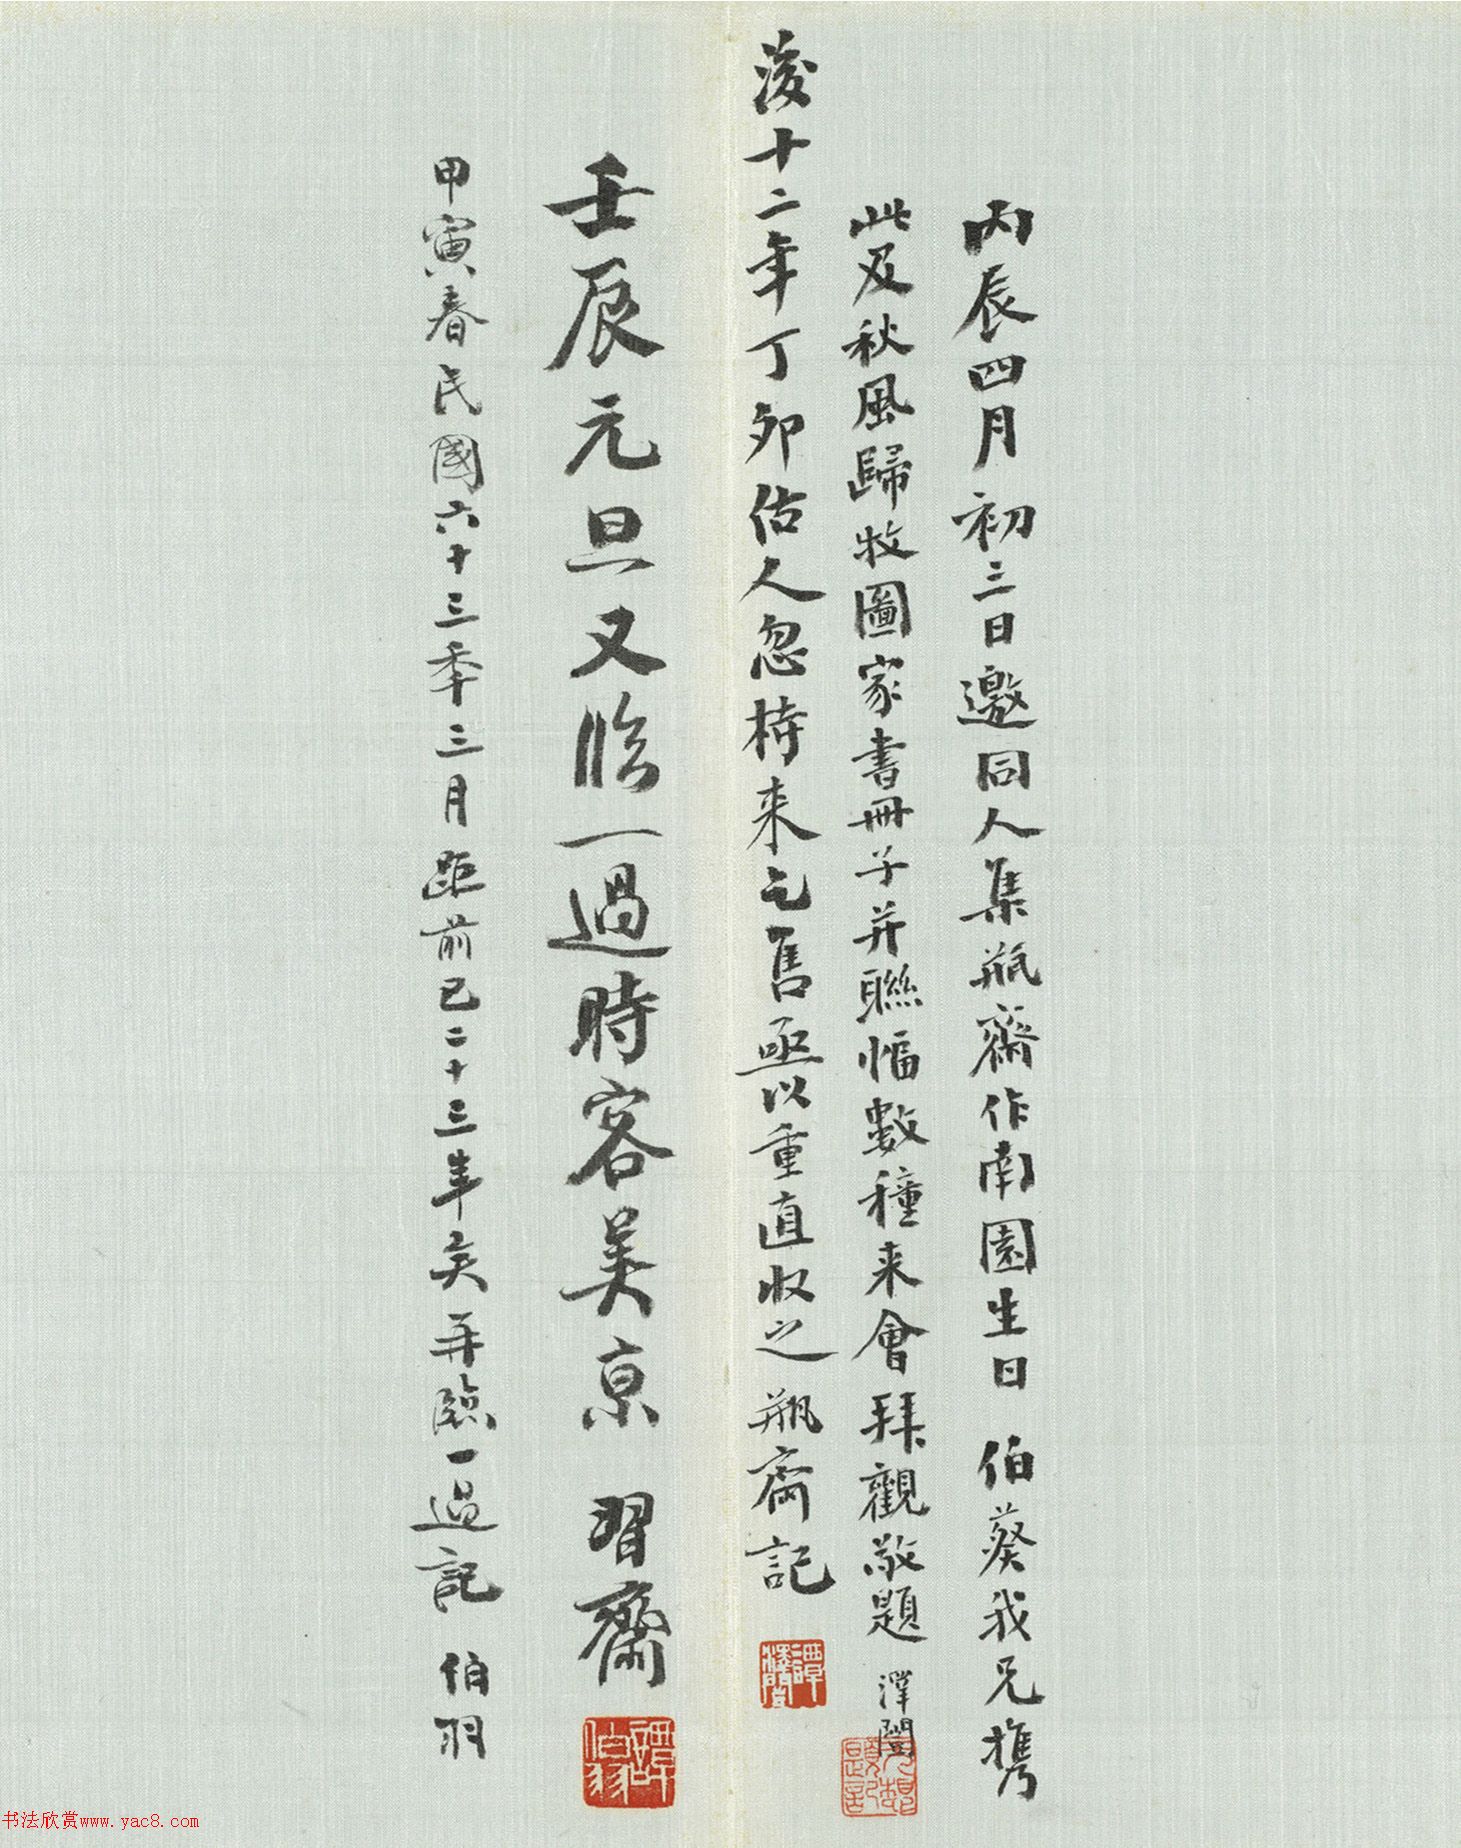 丙辰四月初三日邀同人集瓶齋作南園生日伯葵我兄攜
此及秋風歸牧圖家書冊子并聯幅數種来會拜觀敬題 澤闓
後十二年丁卯估人忽持来乞售亟以重直收之 瓶齋記
譚澤闓
壬辰元旦又臨一過時客美京 習齋
譚伯羽
甲寅春民國六十三季三月距前已二十三年矣再臨一過記 伯羽
书法欣赏www.yac8.com